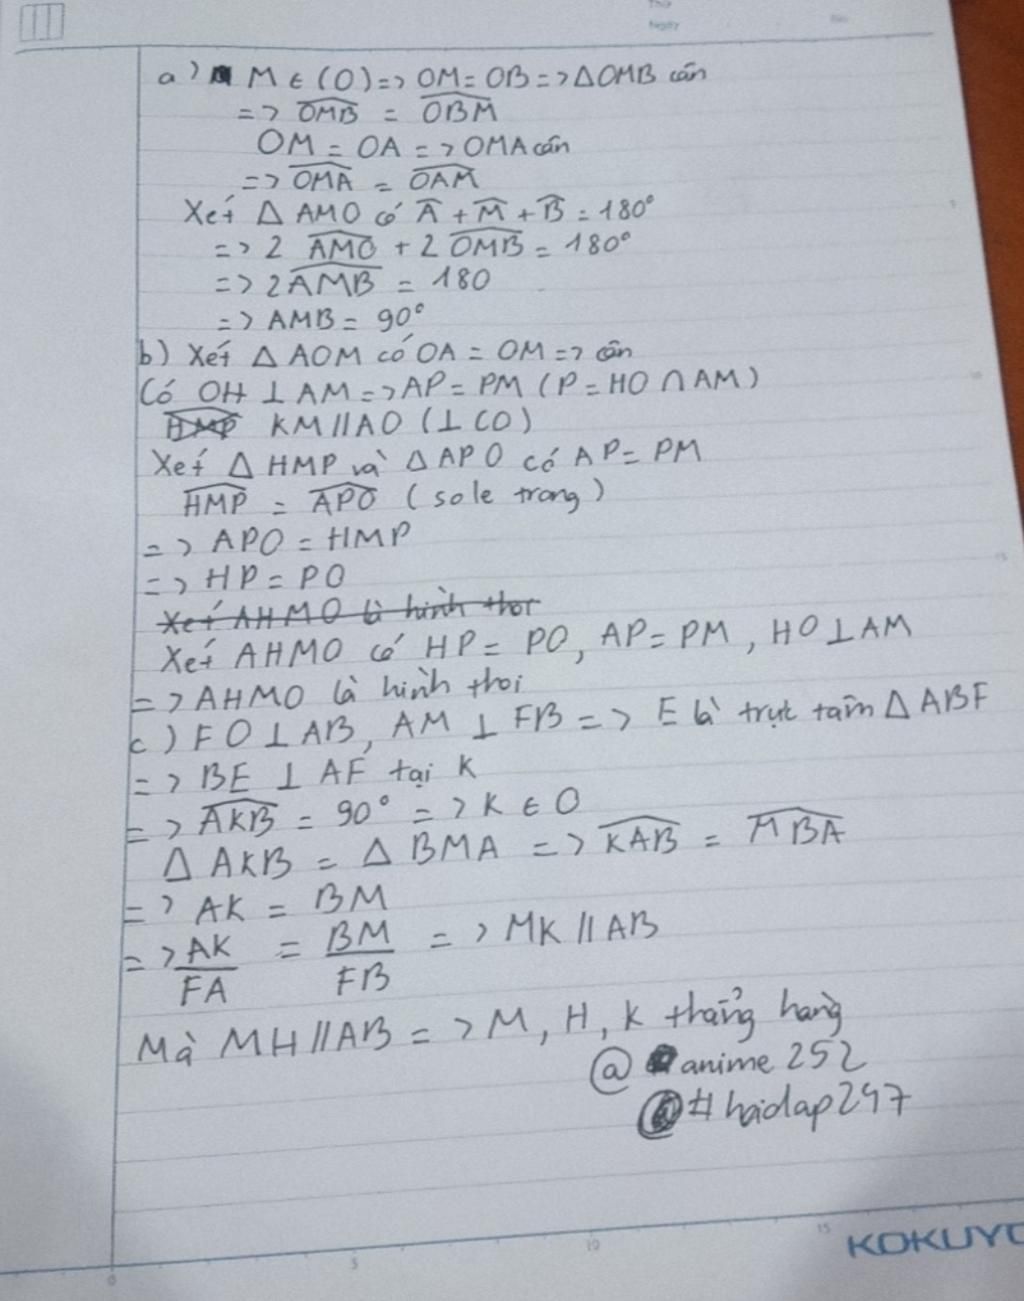 Ngày
a) M ∈ (O) => OM = OB => ΔOMB cân
=> \widehat{OMB} = \widehat{OBM}
OM = OA => OMA cân
=> \widehat{OMA} = \widehat{OAM}
Xét Δ AMO có \widehat{A} + \widehat{M} + \widehat{B} = 180°
=> 2 \widehat{AMO} + 2 \widehat{OMB} = 180°
=> 2\widehat{AMB} = 180
=> AMB = 90°
b) Xét Δ AOM có OA = OM => cân
Có OH ⊥ AM => AP = PM (P = HO ∩ AM)
KM // AO (⊥ CO)
Xét Δ HMP và Δ APO có AP = PM
\widehat{HMP} = \widehat{APO} (sole trong)
=> APO = HMP
=> HP = PO
Xét AHMO là hình thoi
Xét AHMO có HP = PO, AP = PM, HO ⊥ AM
=> AHMO là hình thoi
c) FO ⊥ AB, AM ⊥ FB => E là trực tâm Δ ABF
=> BE ⊥ AF tại K
=> \widehat{AKB} = 90° => K ∈ O
Δ AKB = Δ BMA => \widehat{KAB} = \widehat{MBA}
=> AK = BM
=> \frac{AK}{FA} = \frac{BM}{FB} => MK // AB
Mà MH // AB => M, H, K thẳng hàng
@ anime 252
@ # hoidap247
0 5 10 15
KOKUYO